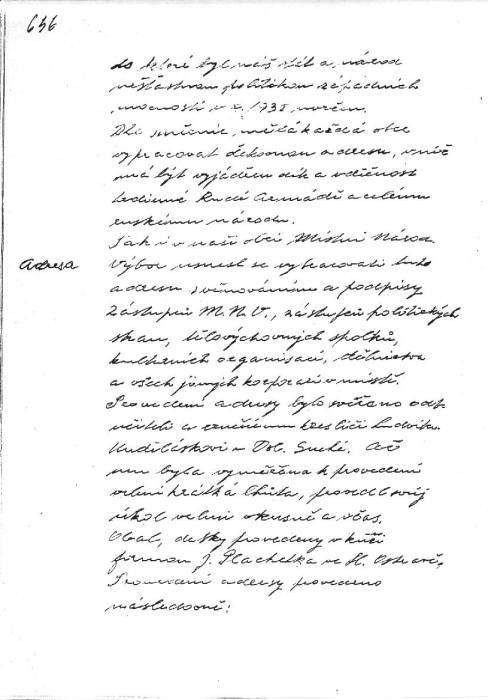 656
do které byl náš stát a národ
nešťastnou politikou západních
mocností v r. 1938 uvržen.
Dle směrnic, měla každá obec
vypracovat děkovnou adresu, v níž
má být vyjádřen dík a vděčnost
hrdinné Rudé Armádě a celému
ruskému národu.
Tak i v naší obci Místní Národ.
Adresa
Výbor usnesl se vypracovati tuto
adresu s věnováním a podpisy
zástupců M.N.V., zástupců politických
stran, tělovýchovných spolků,
kulturních organisací, dělnictva
a všech jiných korporací v místě.
Provedení adresy bylo svěřeno odb.
učiteli a kreslíči Ludvíku
v Dol. Suché. Ač
mu byla vyměřena k provedení
velmi krátká lhůta, provedl svůj
úkol velmi vkusně a včas.
Obal, desky provedeny v kůži
firmou J. Plachetka ve Sl. Ostravě.
adresy provedeno
následovně: